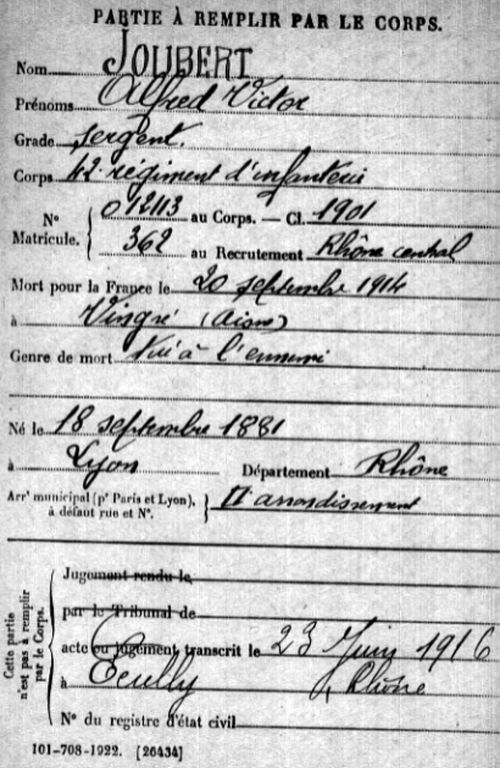 PARTIE À REMPLIR PAR LE CORPS.
Nom JOUBERT
Prénoms Alfred Victor
Grade sergent.
Corps 42 régiment d'infanterie
N° Matricule. { 012113 au Corps. — Cl. 1901
362 au Recrutement Rhône central
Mort pour la France le 20 septembre 1914
à Vingré (Aisne)
Genre de mort Tué à l'ennemi
Né le 18 septembre 1881
à Lyon Département Rhône
Arrt municipal (pr Paris et Lyon), à défaut rue et N°. } II arrondissement
Cette partie n'est pas à remplir par le Corps.
Jugement rendu le
par le Tribunal de
acte ou jugement transcrit le 23 Juin 1916
à Ecully, Rhône
N° du registre d'état civil
101-708-1922. [26434]